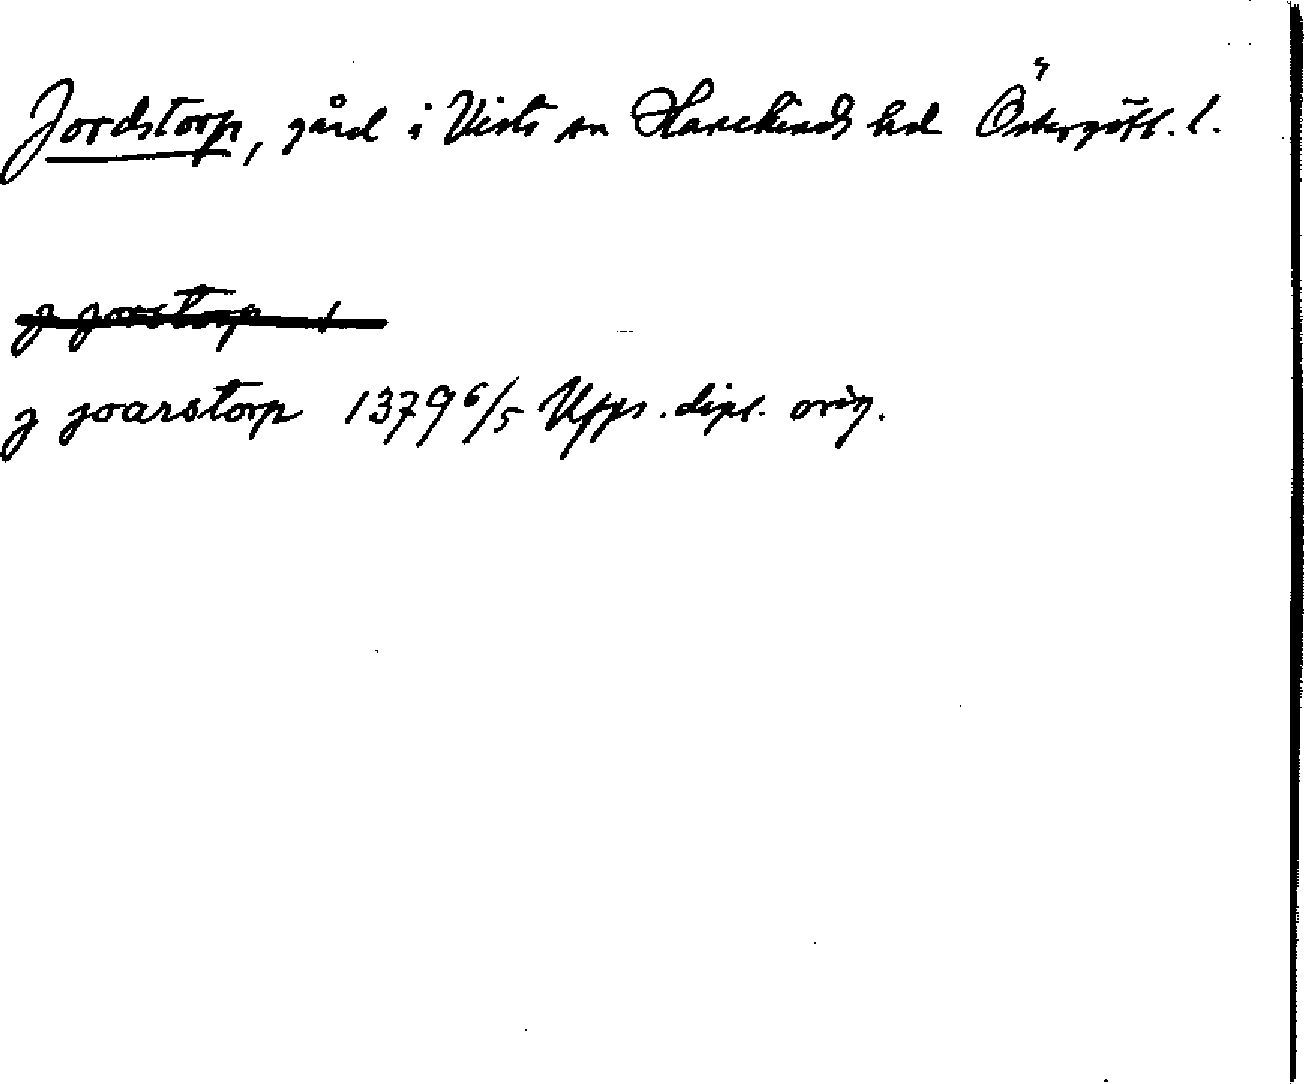 Jordstorp, gård i Vists sn Hanekinds hd Östergötl. l.
j jorstorp 1
j joarstorp 1379 6/5 Upps. dipl. orig.